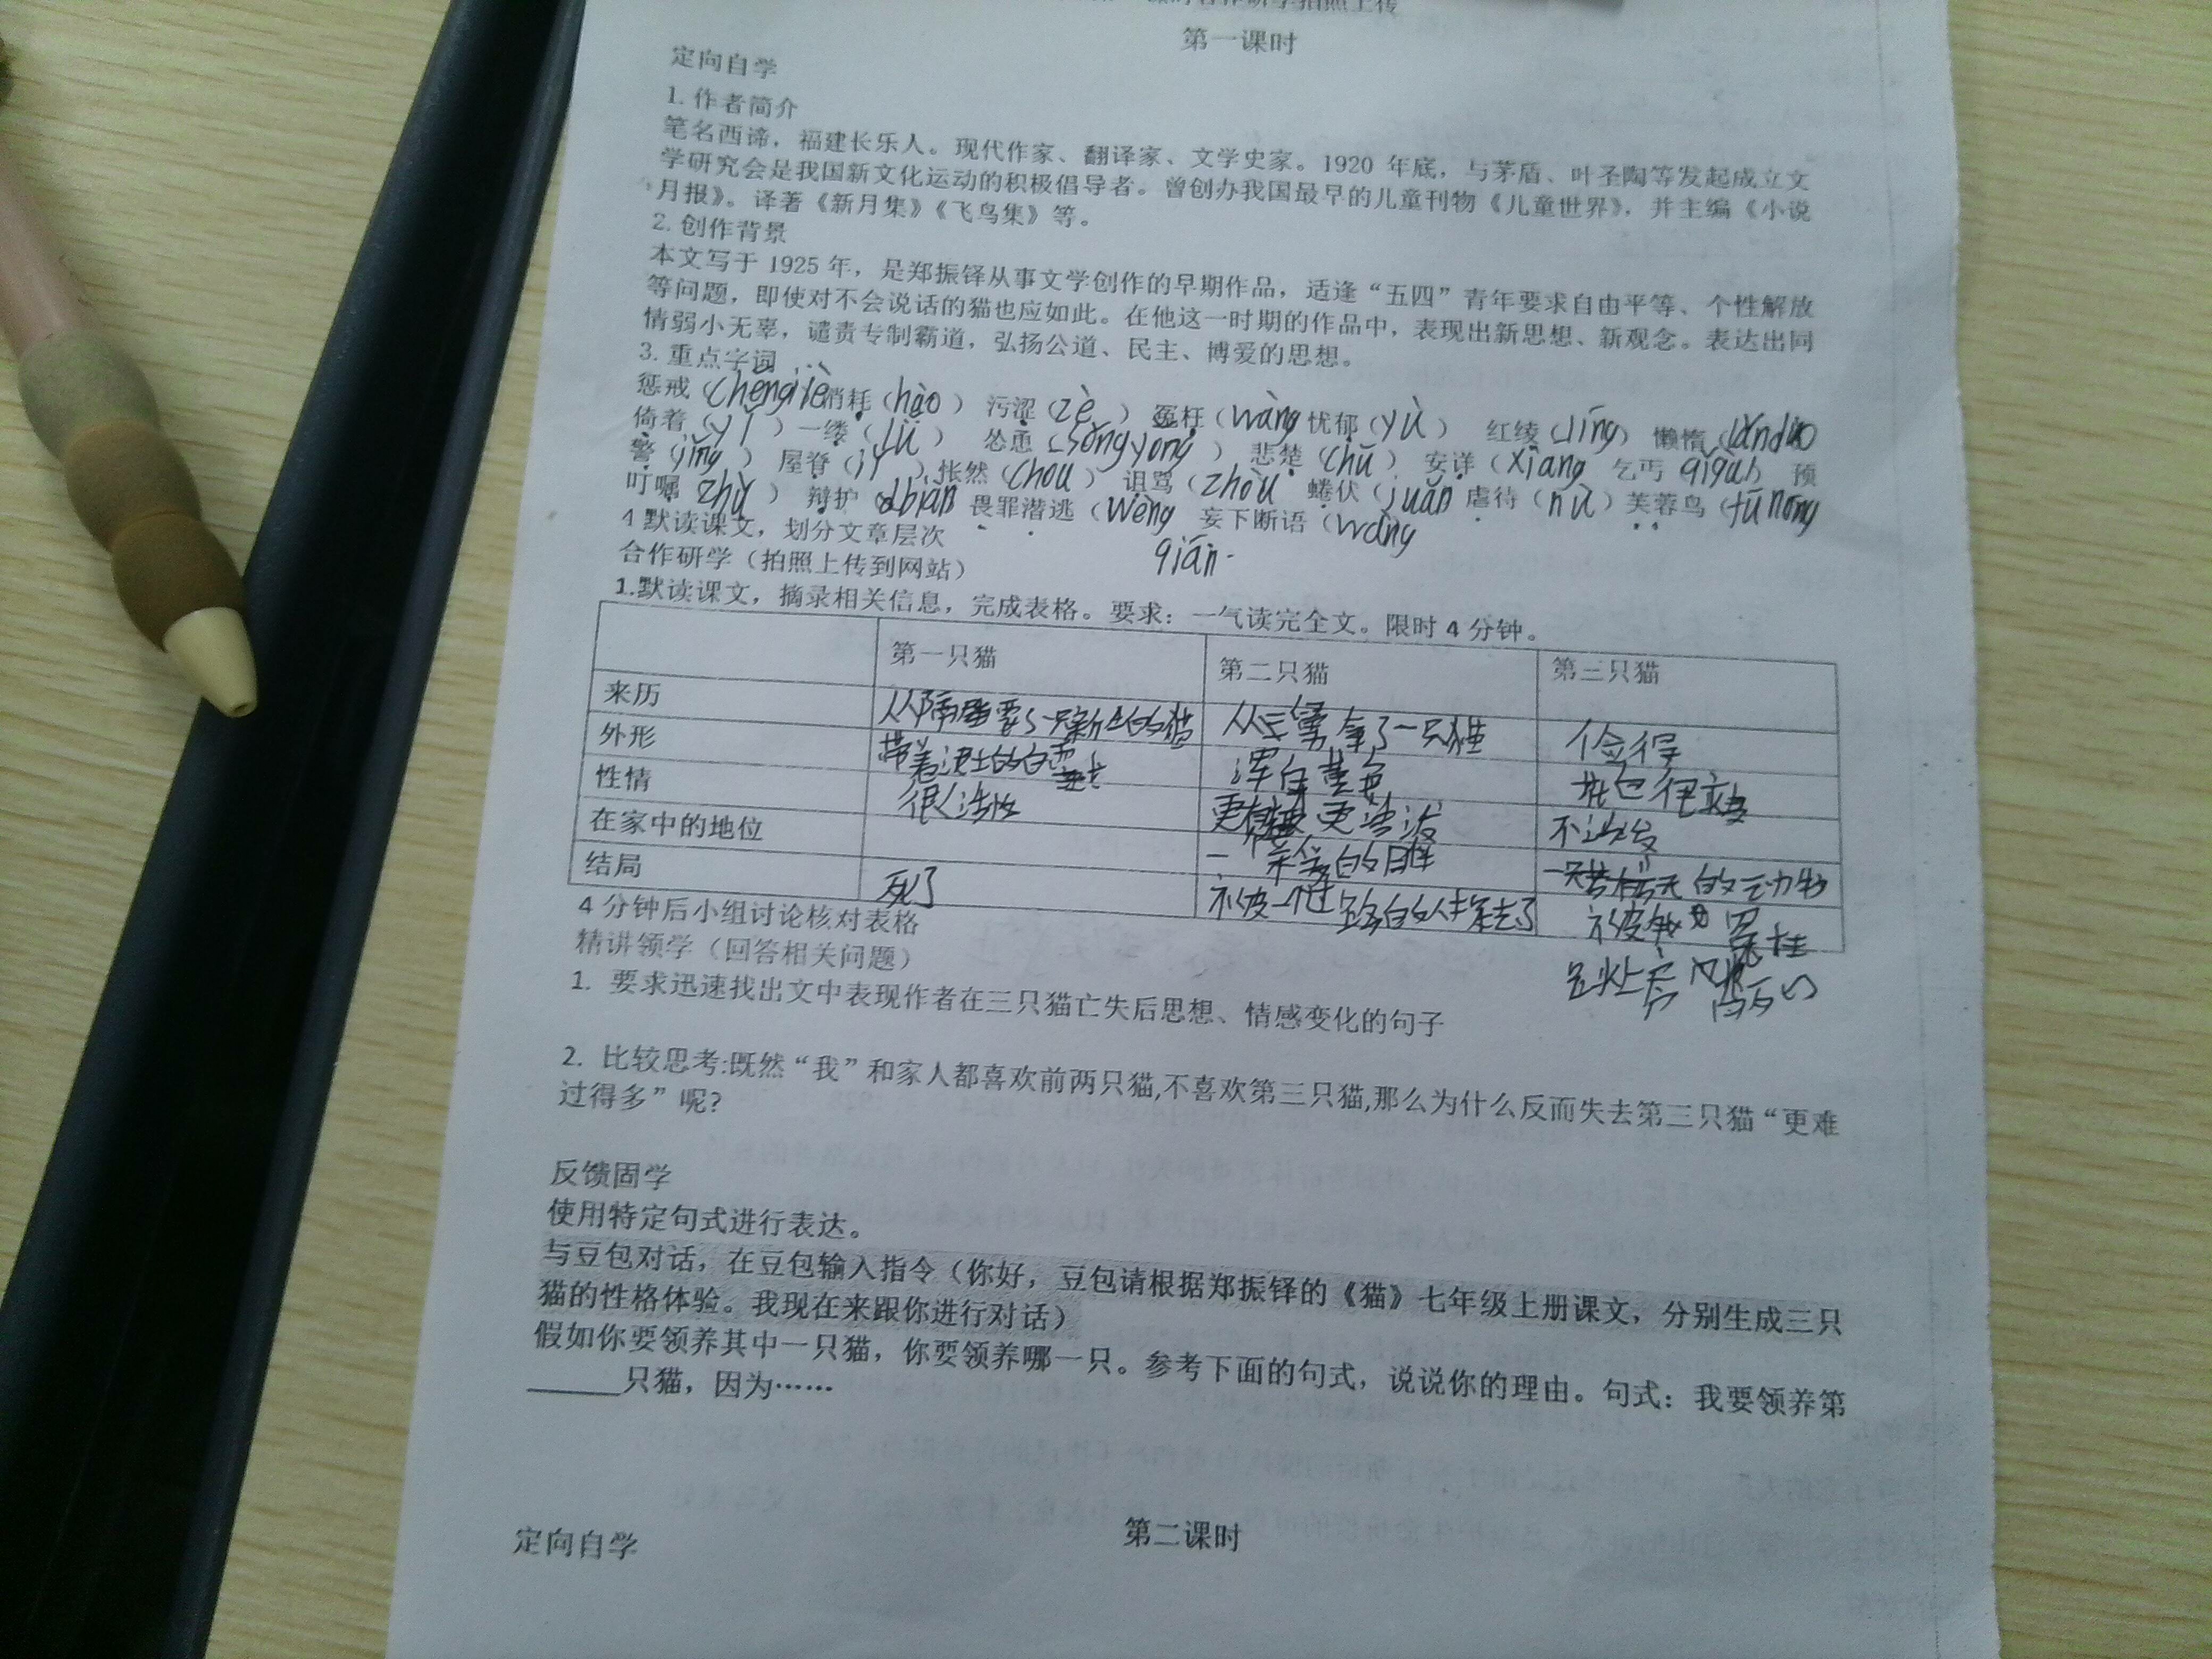 第一课时
定向自学
1. 作者简介
笔名西谛，福建长乐人。现代作家、翻译家、文学史家。1920 年底，与茅盾、叶圣陶等发起成立文
学研究会是我国新文化运动的积极倡导者。曾创办我国最早的儿童刊物《儿童世界》，并主编《小说
月报》。译著《新月集》《飞鸟集》等。
2. 创作背景
本文写于 1925 年，是郑振铎从事文学创作的早期作品，适逢“五四”青年要求自由平等、个性解放
等问题，即使对不会说话的猫也应如此。在他这一时期的作品中，表现出新思想、新观念。表达出同
情弱小无辜，谴责专制霸道，弘扬公道、民主、博爱的思想。
3. 重点字词
惩戒（chéngjiè 消耗（hào ） 污涩（zè ） 冤枉（wàng 忧郁（yù ） 红绫（líng） 懒惰（
倚着（yǐ ）一缕（lǚ ） 怂恿（sǒngyǒng ） 悲楚（chǔ ） 安详（xiáng 乞丐 qǐgài ） 预
警（jǐng ） 屋脊（jǐ ）怅然（chou ） 诅骂（zhòu 蜷伏（juǎn 虐待（nù ）芙蓉鸟（fúnóng
叮嘱 zhǔ ） 辩护 biàn 畏罪潜逃（wèng 妄下断语（wàng
qián
4 默读课文，划分文章层次
合作研学（拍照上传到网站）
1.默读课文，摘录相关信息，完成表格。要求：一气读完全文。限时 4 分钟。
第一只猫 第二只猫 第三只猫
来历 从隔壁要了一只新生的猫 从三舅拿了一只猫 捡得
外形 带着泥土的白雪球 浑身黄色
性情 很活泼 更有趣、更活泼 不活泼
在家中的地位 一个亲爱的同伴 一只若有若无的动物
结局 死了 被一个过路的人捉去了
4 分钟后小组讨论核对表格
精讲领学（回答相关问题）
1. 要求迅速找出文中表现作者在三只猫亡失后思想、情感变化的句子
2. 比较思考:既然“我”和家人都喜欢前两只猫,不喜欢第三只猫,那么为什么反而失去第三只猫“更难
过得多”呢?
反馈固学
使用特定句式进行表达。
与豆包对话，在豆包输入指令（你好，豆包请根据郑振铎的《猫》七年级上册课文，分别生成三只
猫的性格体验。我现在来跟你进行对话）
假如你要领养其中一只猫，你要领养哪一只。参考下面的句式，说说你的理由。句式：我要领养第
______只猫，因为……
第二课时
定向自学